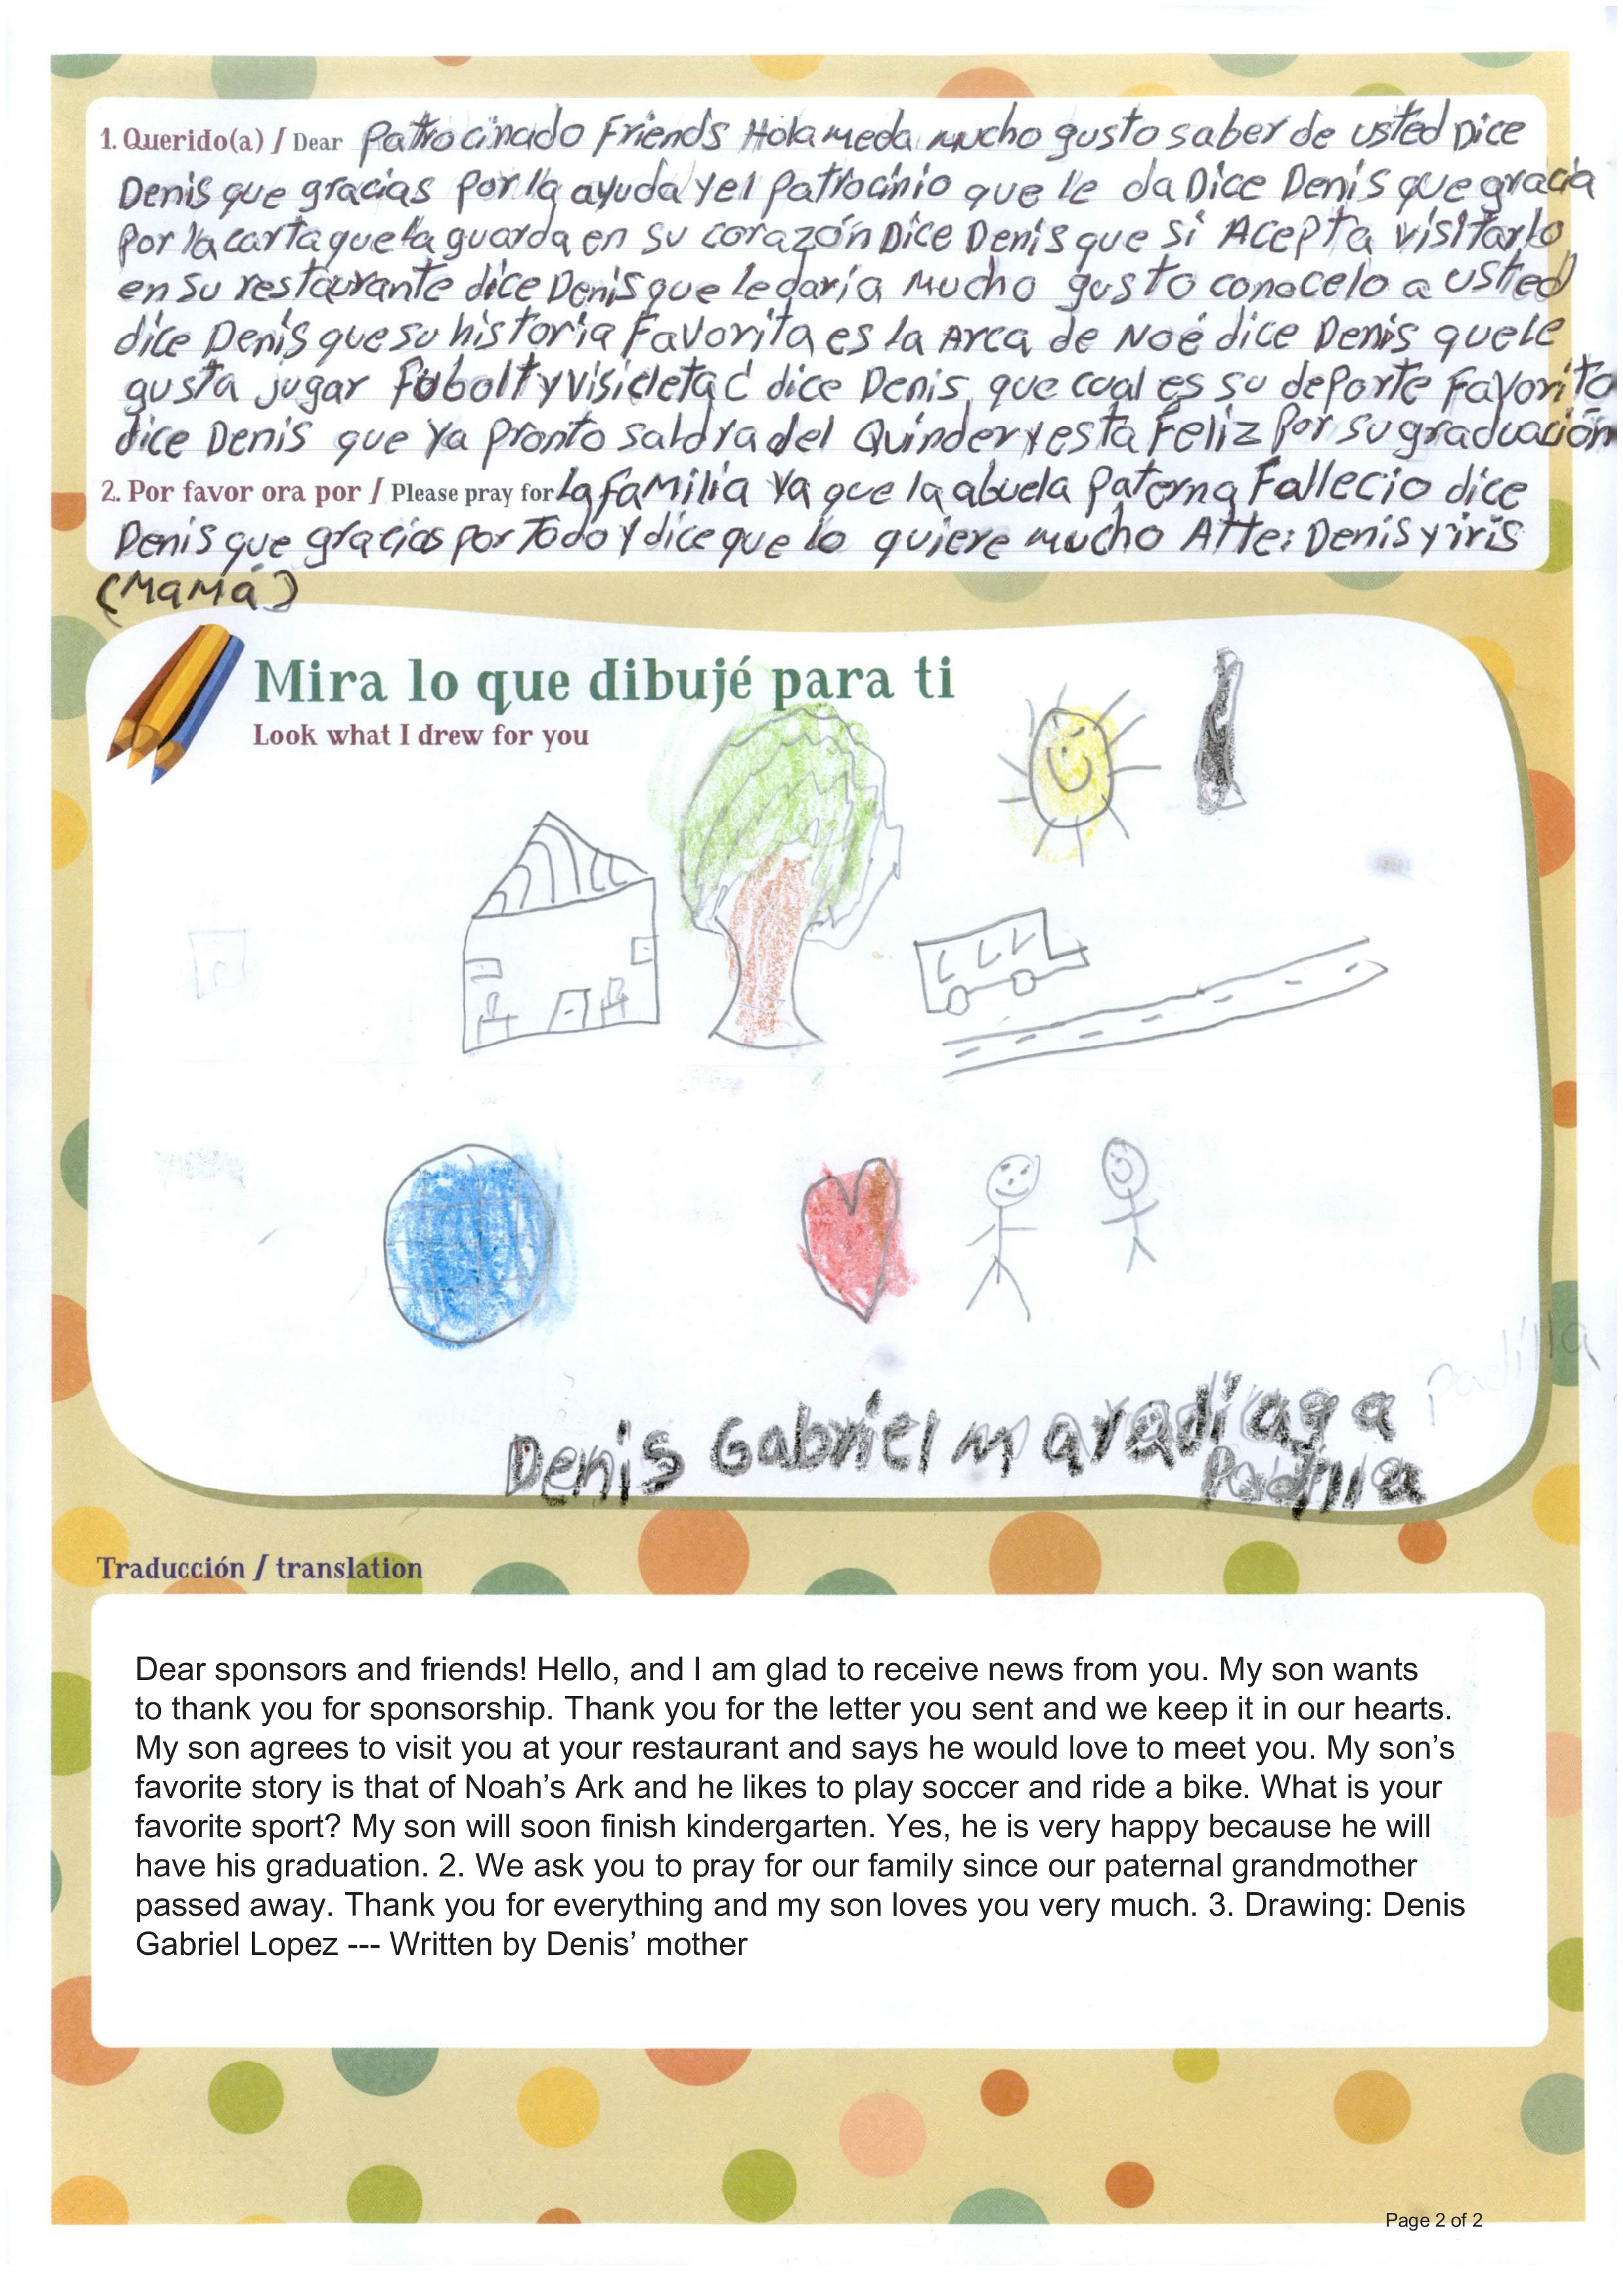 1. Querido(a) / Dear Patrocinado Friends Hola meda mucho gusto saber de usted Dice
Denis que gracias por la ayuda y el patrocinio que le da Dice Denis que gracia
por la carta que la guarda en su corazón Dice Denis que si Acepta visitarlo
en su restaurante dice Denis que le daría mucho gusto conocelo a usted
dice Denis que su historia Favorita es la Arca de Noé dice Denis que le
gusta jugar fubolt y visicleta dice Denis que cual es su deporte Favorito
dice Denis que ya pronto saldra del Quinder y esta Feliz por su graduación
2. Por favor ora por / Please pray for La familia ya que la abuela paterna Fallecio dice
Denis que gracias por Todo y dice que lo quiere mucho Atte: Denis y iris
(Mamá)
Mira lo que dibujé para ti
Look what I drew for you
padilla
Denis Gabriel maradiaga
Padilla
Traducción / translation
Dear sponsors and friends! Hello, and I am glad to receive news from you. My son wants
to thank you for sponsorship. Thank you for the letter you sent and we keep it in our hearts.
My son agrees to visit you at your restaurant and says he would love to meet you. My son’s
favorite story is that of Noah’s Ark and he likes to play soccer and ride a bike. What is your
favorite sport? My son will soon finish kindergarten. Yes, he is very happy because he will
have his graduation. 2. We ask you to pray for our family since our paternal grandmother
passed away. Thank you for everything and my son loves you very much. 3. Drawing: Denis
Gabriel Lopez --- Written by Denis’ mother
Page 2 of 2